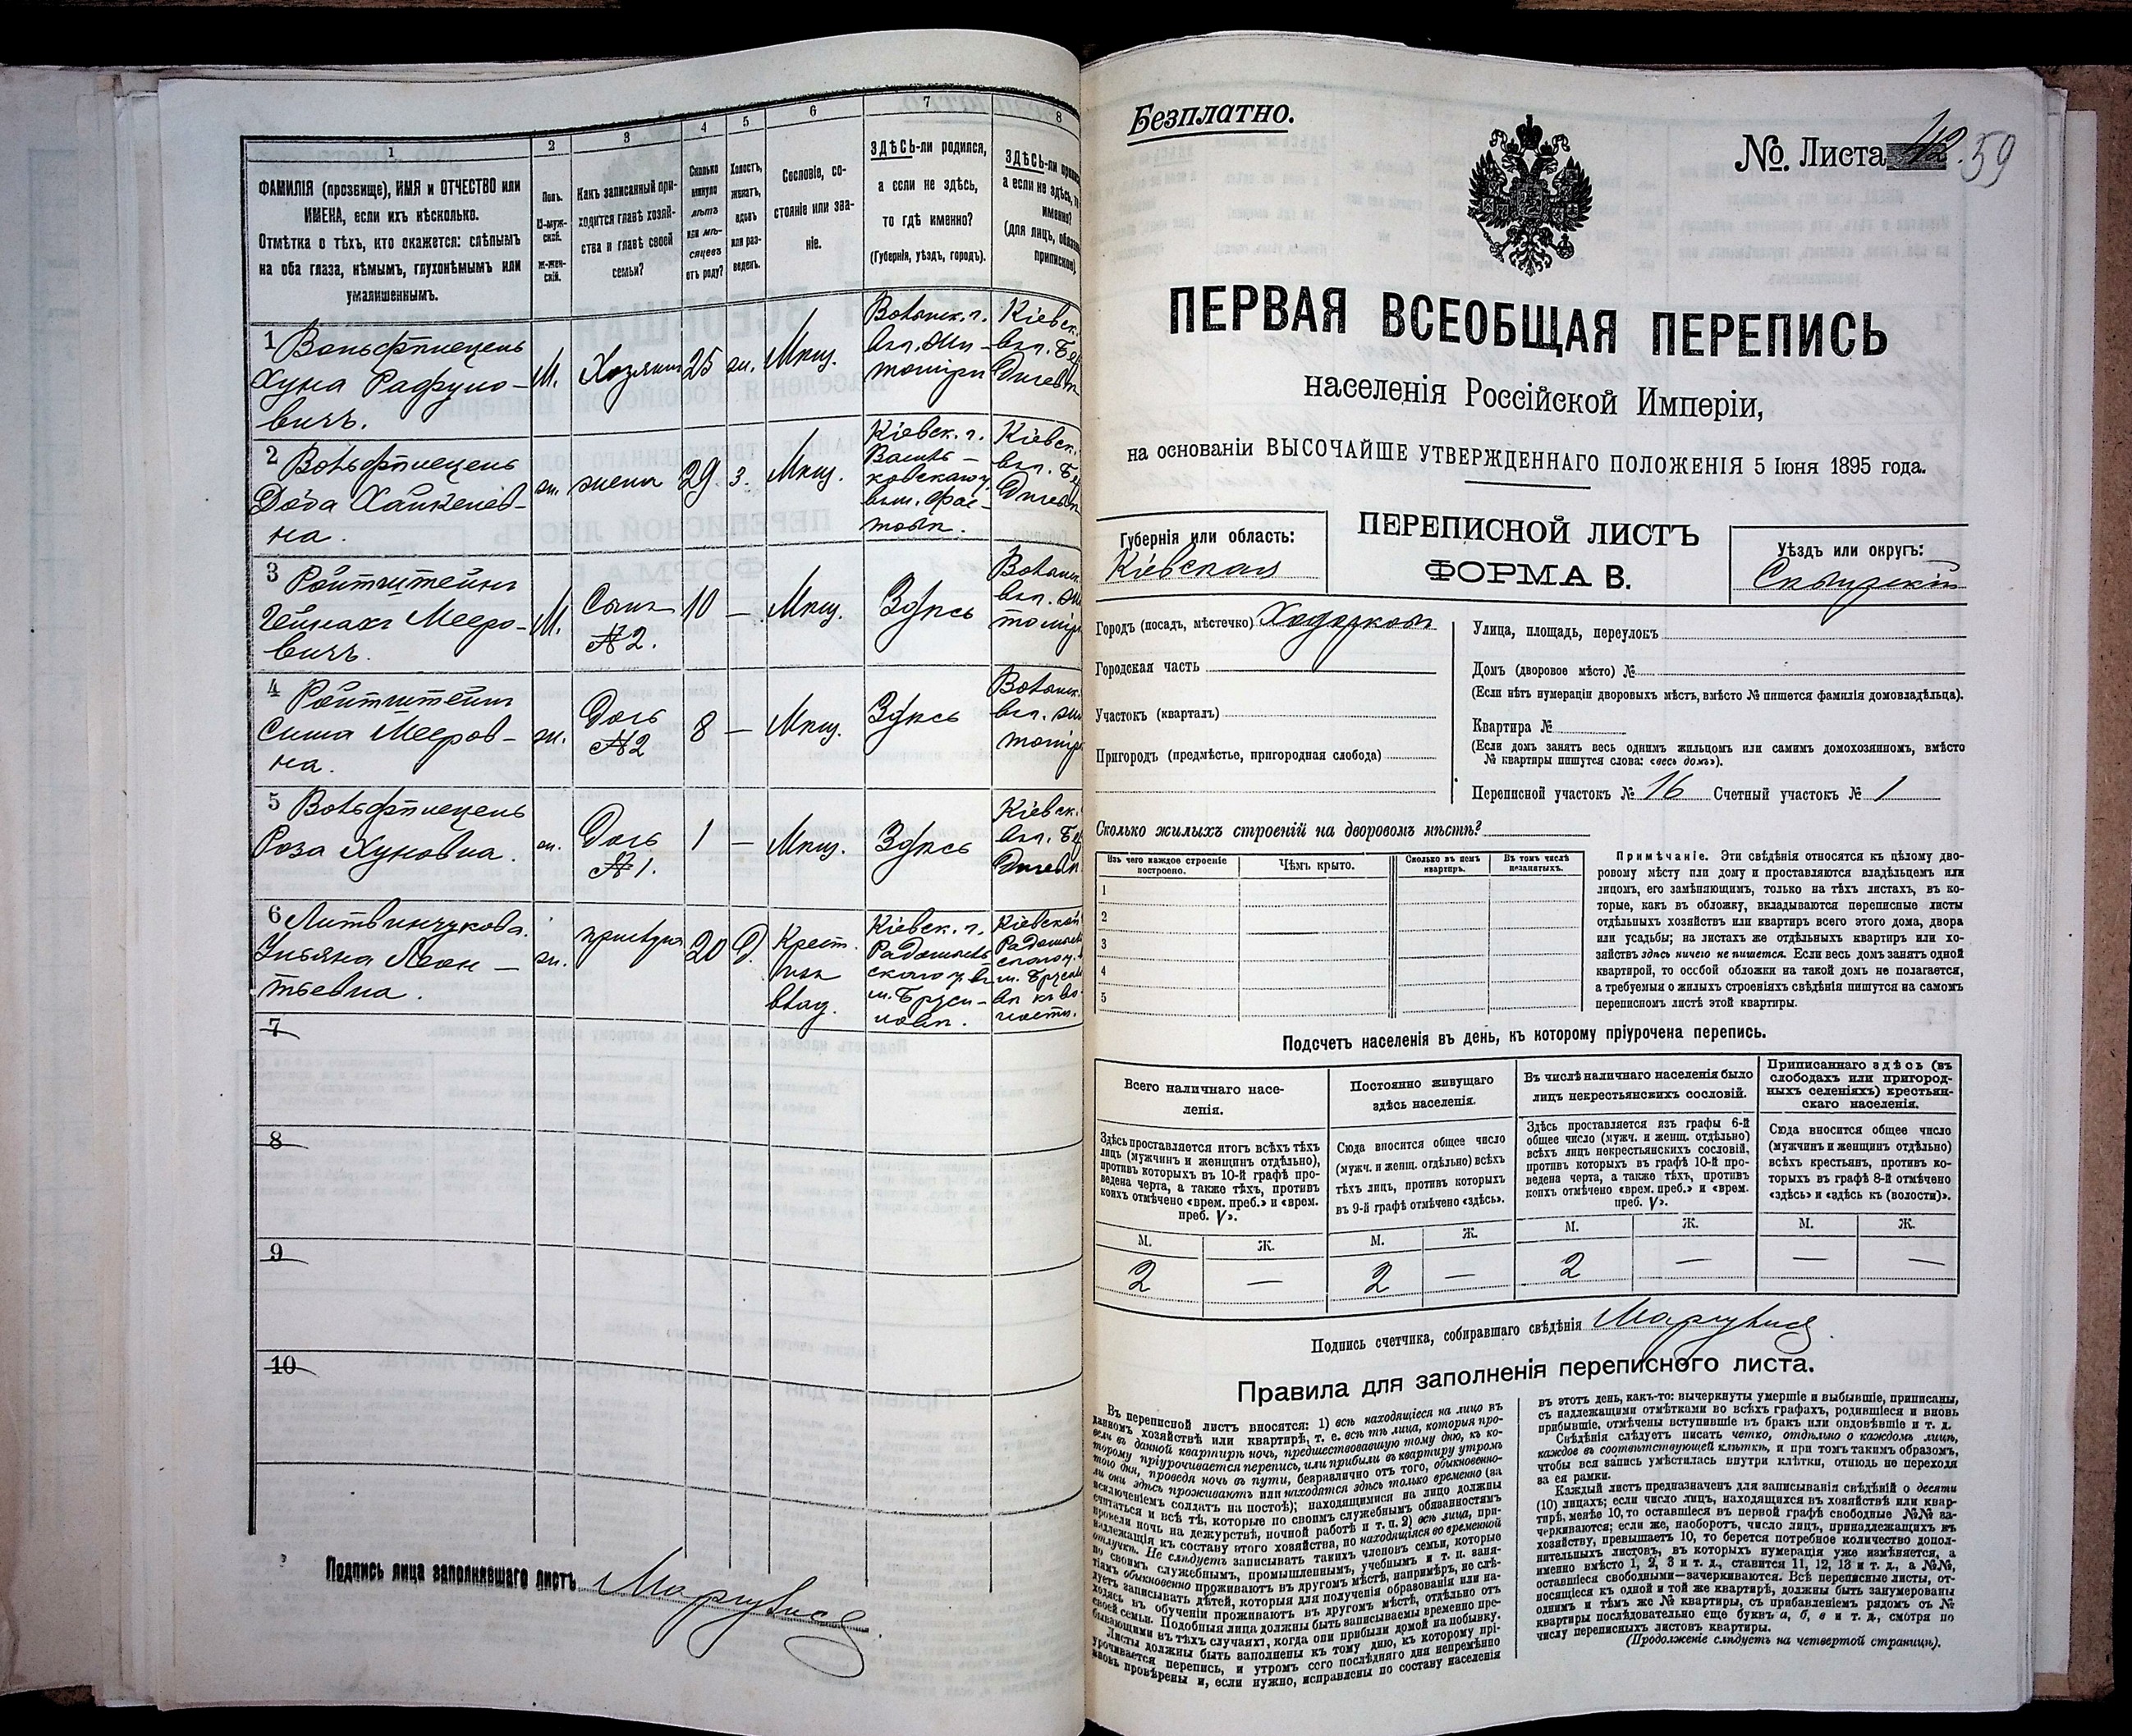 1
2
3
4
5
6
7
8
ФАМИЛІЯ (прозвище), ИМЯ и ОТЧЕСТВО или
ИМЕНА, если ихъ нѣсколько.
Отмѣтка о тѣхъ, кто окажется: слѣпымъ
на оба глаза, нѣмымъ, глухонѣмымъ или
умалишеннымъ.
Полъ.
М-муж-
ской.
Ж-жен-
скій.
Какъ записанный при-
ходится главѣ хозяй-
ства и главѣ своей
семьи?
Сколько
минуло
лѣтъ
или мѣ-
сяцевъ
отъ роду?
Холостъ,
женатъ,
вдовъ
или раз-
веденъ.
Сословіе, со-
стояніе или зва-
ніе.
ЗДѢСЬ-ли родился,
а если не здѣсь,
то гдѣ именно?
(Губернія, уѣздъ, городъ).
ЗДѢСЬ-ли
а если не здѣсь,
(для лицъ,
1
Хуна
вичъ.
М.
Хозяинъ
25
ж.
Мѣщ.
Волынск. г.
Кіевск.
2
на.
ж.
жена
29
з.
Мѣщ.
Кіевск. г.
Василь-
ковскаго у.
Кіевск.
3
Ройтштейнъ
Мееро-
вичъ.
М.
Сынъ
№ 2.
10
—
Мѣщ.
Здѣсь
Волынск.
4
Ройтштейнъ
Мееров-
на.
ж.
Дочь
№ 2
8
—
Мѣщ.
Здѣсь
Волынск.
5
Роза Хуновна.
ж.
Дочь
№ 1.
1
—
Мѣщ.
Здѣсь
Кіевск.
6 Литвинчукова
Ульяна Леон-
тьевна.
ж.
прислуга
20
Д.
Крест.
влад.
Кіевск. г.
Радомысль-
скаго у.
м. Бруси-
ловѣ.
Кіевской
7
8
9
10
Подпись лица заполнявшаго листъ
Безплатно.
№ Листа 42. 59
ПЕРВАЯ ВСЕОБЩАЯ ПЕРЕПИСЬ
населенія Россійской Имперіи,
на основаніи ВЫСОЧАЙШЕ УТВЕРЖДЕННАГО ПОЛОЖЕНІЯ 5 Іюня 1895 года.
Губернія или область:
Кіевская
ПЕРЕПИСНОЙ ЛИСТЪ
ФОРМА В.
Уѣздъ или округъ:
Сквирскій
Городъ (посадъ, мѣстечко) Ходорковъ
Городская часть
Участокъ (кварталъ)
Пригородъ (предмѣстье, пригородная слобода)
Улица, площадь, переулокъ
Домъ (дворовое мѣсто) №
(Если нѣтъ нумераціи дворовыхъ мѣстъ, вмѣсто № пишется фамилія домовладѣльца).
Квартира №
(Если домъ занятъ весь однимъ жильцомъ или самимъ домохозяиномъ, вмѣсто
№ квартиры пишутся слова: «весь домъ»).
Переписной участокъ № 16 Счетный участокъ № 1
Сколько жилыхъ строеній на дворовомъ мѣстѣ?
Изъ чего каждое строеніе
построено.
Чѣмъ крыто.
Сколько въ немъ
квартиръ.
Въ томъ числѣ
незанятыхъ.
1
2
3
4
5
Примѣчаніе. Эти свѣдѣнія относятся къ цѣлому дво-
ровому мѣсту или дому и проставляются владѣльцемъ или
лицомъ, его замѣняющимъ, только на тѣхъ листахъ, въ ко-
торые, какъ въ обложку, вкладываются переписные листы
отдѣльныхъ хозяйствъ или квартиръ всего этого дома, двора
или усадьбы; на листахъ же отдѣльныхъ квартиръ или хо-
зяйствъ здѣсь ничего не пишется. Если весь домъ занятъ одной
квартирой, то особой обложки на такой домъ не полагается,
а требуемыя о жилыхъ строеніяхъ свѣдѣнія пишутся на самомъ
переписномъ листѣ этой квартиры.
Подсчетъ населенія въ день, къ которому пріурочена перепись.
Всего наличнаго насе-
ленія.
Постоянно живущаго
здѣсь населенія.
Въ числѣ наличнаго населенія было
лицъ некрестьянскихъ сословій.
Приписаннаго здѣсь (въ
слободахъ или пригород-
ныхъ селеніяхъ) крестьян-
скаго населенія.
Здѣсь проставляется итогъ всѣхъ тѣхъ
лицъ (мужчинъ и женщинъ отдѣльно),
противъ которыхъ въ 10-й графѣ про-
ведена черта, а также тѣхъ, противъ
коихъ отмѣчено «врем. преб.» и «врем.
преб. V».
Сюда вносится общее число
(мужч. и женщ. отдѣльно) всѣхъ
тѣхъ лицъ, противъ которыхъ
въ 9-й графѣ отмѣчено «здѣсь».
Здѣсь проставляется изъ графы 6-й
общее число (мужч. и женщ. отдѣльно)
всѣхъ лицъ некрестьянскихъ сословій,
противъ которыхъ въ графѣ 10-й про-
ведена черта, а также тѣхъ, противъ
коихъ отмѣчено «врем. преб.» и «врем.
преб. V».
Сюда вносится общее число
(мужчинъ и женщинъ отдѣльно)
всѣхъ крестьянъ, противъ ко-
торыхъ въ графѣ 8-й отмѣчено
«здѣсь» и «здѣсь къ (волости)».
М. Ж. М. Ж. М. Ж. М. Ж.
2 — 2 — 2 — — —
Подпись счетчика, собиравшаго свѣдѣнія
Правила для заполненія переписного листа.
Въ переписной листъ вносятся: 1) всѣ находящіеся на лицо въ
данномъ хозяйствѣ или квартирѣ, т. е. всѣ тѣ лица, которыя про-
вели въ данной квартирѣ ночь, предшествовавшую тому дню, къ ко-
торому пріурочивается перепись, или прибыли въ квартиру утромъ
того дня, проведя ночь въ пути, безразлично отъ того, обыкновенно-
ли они здѣсь проживаютъ или находятся здѣсь только временно (за
исключеніемъ солдатъ на постоѣ); находящимися на лицо должны
считаться и всѣ тѣ, которые по своимъ служебнымъ обязанностямъ
провели ночь на дежурствѣ, ночной работѣ и т. п. 2) всѣ лица, при-
надлежащія къ составу этого хозяйства, но находящіяся во временной
отлучкѣ. Не слѣдуетъ записывать такихъ членовъ семьи, которые
по своимъ служебнымъ, промышленнымъ, учебнымъ и т. п. заня-
тіямъ обыкновенно проживаютъ въ другомъ мѣстѣ, напримѣръ, не слѣ-
дуетъ записывать дѣтей, которыя для полученія образованія или на-
ходясь въ обученіи проживаютъ въ другомъ мѣстѣ, отдѣльно отъ
своей семьи. Подобныя лица должны быть записываемы временно пре-
бывающими въ тѣхъ случаяхъ, когда они прибыли домой на побывку.
Листы должны быть заполнены къ тому дню, къ которому прі-
урочивается перепись, и утромъ сего послѣдняго дня непремѣнно
вновь провѣрены и, если нужно, исправлены по составу населенія
въ этотъ день, какъ-то: вычеркнуты умершіе и выбывшіе, приписаны,
съ надлежащими отмѣтками во всѣхъ графахъ, родившіеся и вновь
прибывшіе, отмѣчены вступившіе въ бракъ или овдовѣвшіе и т. д.
Свѣдѣнія слѣдуетъ писать четко, отдѣльно о каждомъ лицѣ,
каждое въ соотвѣтствующей клѣткѣ, и при томъ такимъ образомъ,
чтобы вся запись умѣстилась внутри клѣтки, отнюдь не переходя
за ея рамки.
Каждый листъ предназначенъ для записыванія свѣдѣній о десяти
(10) лицахъ; если число лицъ, находящихся въ хозяйствѣ или квар-
тирѣ, менѣе 10, то оставшіеся въ первой графѣ свободные №№ за-
черкиваются; если же, наоборотъ, число лицъ, принадлежащихъ къ
хозяйству, превышаетъ 10, то берется потребное количество допол-
нительныхъ листовъ, въ которыхъ нумерація уже измѣняется, а
именно вмѣсто 1, 2, 3 и т. д., ставится 11, 12, 13 и т. д., а №№,
оставшіеся свободными—зачеркиваются. Всѣ переписные листы, от-
носящіеся къ одной и той же квартирѣ, должны быть занумерованы
однимъ и тѣмъ же № квартиры, съ прибавленіемъ рядомъ съ №
квартиры послѣдовательно еще буквъ а, б, в и т. д., смотря по
числу переписныхъ листовъ квартиры.
(Продолженіе слѣдуетъ на четвертой страницѣ).